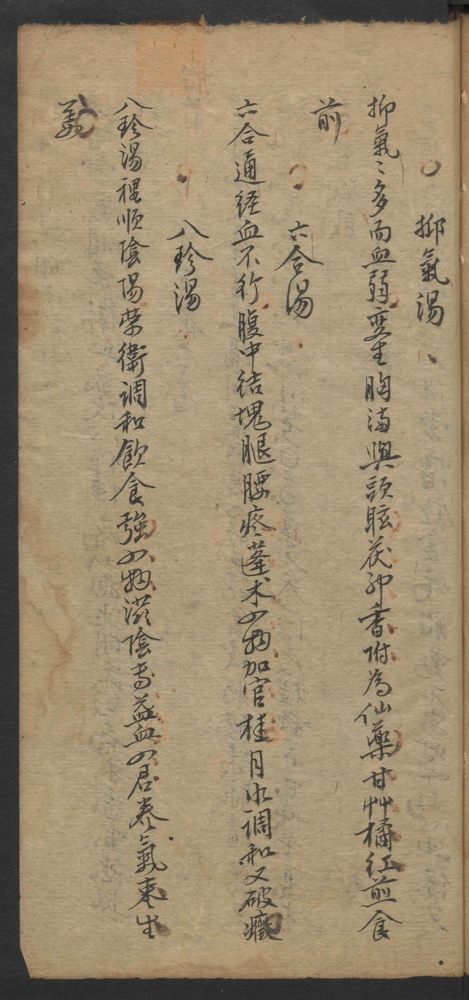 抑氣湯
抑氣〻多而血弱變生胸滿與頭眩茯神香附為仙藥甘艸橘红煎食
前
六合湯
六合通经血不行腹中结塊腿腰疼蓬术四物加官桂月水調和又破癥
八珍湯
八珍湯裡順陰陽荣衛調和飲食強四物滋陰專益血四君养氣枣生
姜